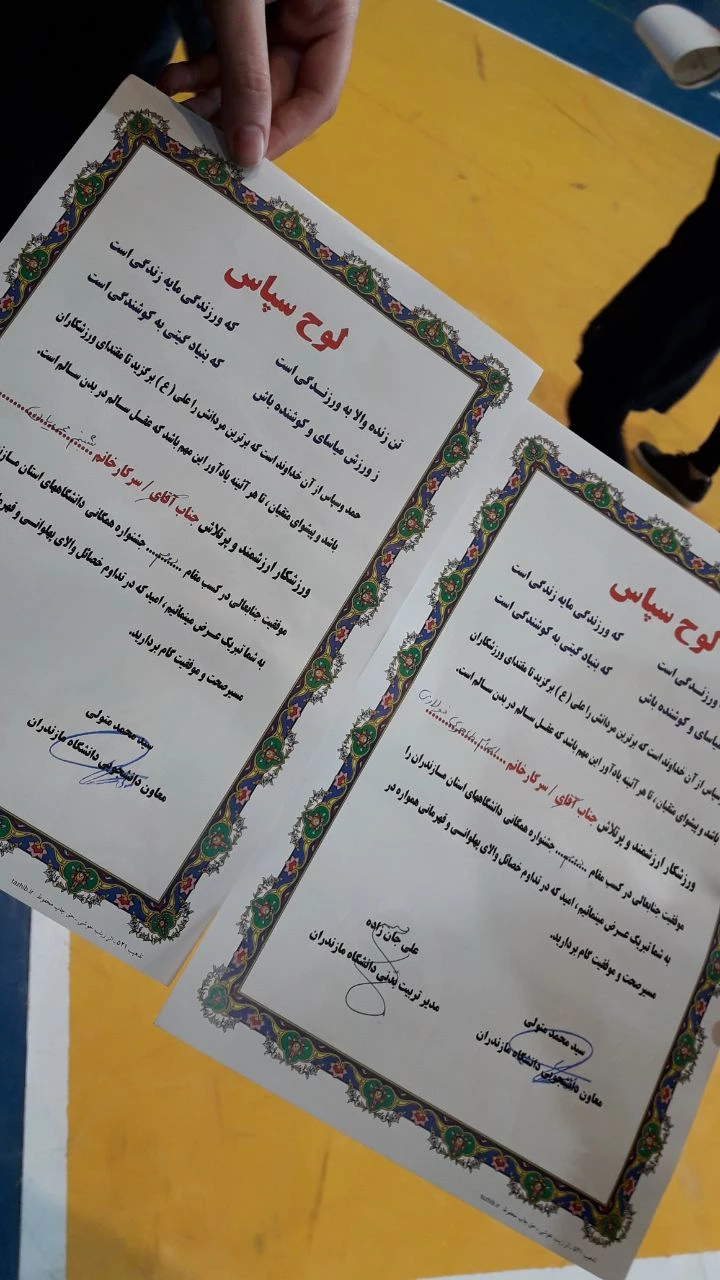 لوح سپاس
تن زنده والا به ورزندگی است که ورزندگی مایه زندگی است
ز ورزش میاسای و کوشنده باش که بنیاد گیتی به کوشندگی است
حمد وسپاس از آن خداوند است که برترین مردانش را علی (ع) برگزید تا مقتدای ورزشکاران
باشد و پیشوای متقیان، تا هر آئینه یادآور این مهم باشد که عقل سالم در بدن سالم است.
ورزشکار ارزشمند و پرتلاش جناب آقای / سرکار خانم
موفقیت جنابعالی در کسب مقام جشنواره همگانی دانشگاههای استان
به شما تبریک عرض مینمائیم، امید که در تداوم خصائل والای پهلوانی و
مسیر صحت و موفقیت گام بردارید.
سید محمد متولی
معاون دانشجویی دانشگاه مازندران
tazhib.ir
لوح سپاس
ورزندگی است که ورزندگی مایه زندگی است
میاسای و کوشنده باش که بنیاد گیتی به کوشندگی است
وسپاس از آن خداوند است که برترین مردانش را علی (ع) برگزید تا مقتدای ورزشکاران
باشد و پیشوای متقیان، تا هر آئینه یادآور این مهم باشد که عقل سالم در بدن سالم است.
ورزشکار ارزشمند و پرتلاش جناب آقای / سرکار خانم
موفقیت جنابعالی در کسب مقام جشنواره همگانی دانشگاههای استان مازندران را
به شما تبریک عرض مینمائیم، امید که در تداوم خصائل والای پهلوانی و قهرمانی همواره در
مسیر صحت و موفقیت گام بردارید.
سید محمد متولی
معاون دانشجویی دانشگاه مازندران
علی جان زاده
مدیر تربیت بدنی دانشگاه مازندران
tazhib.ir